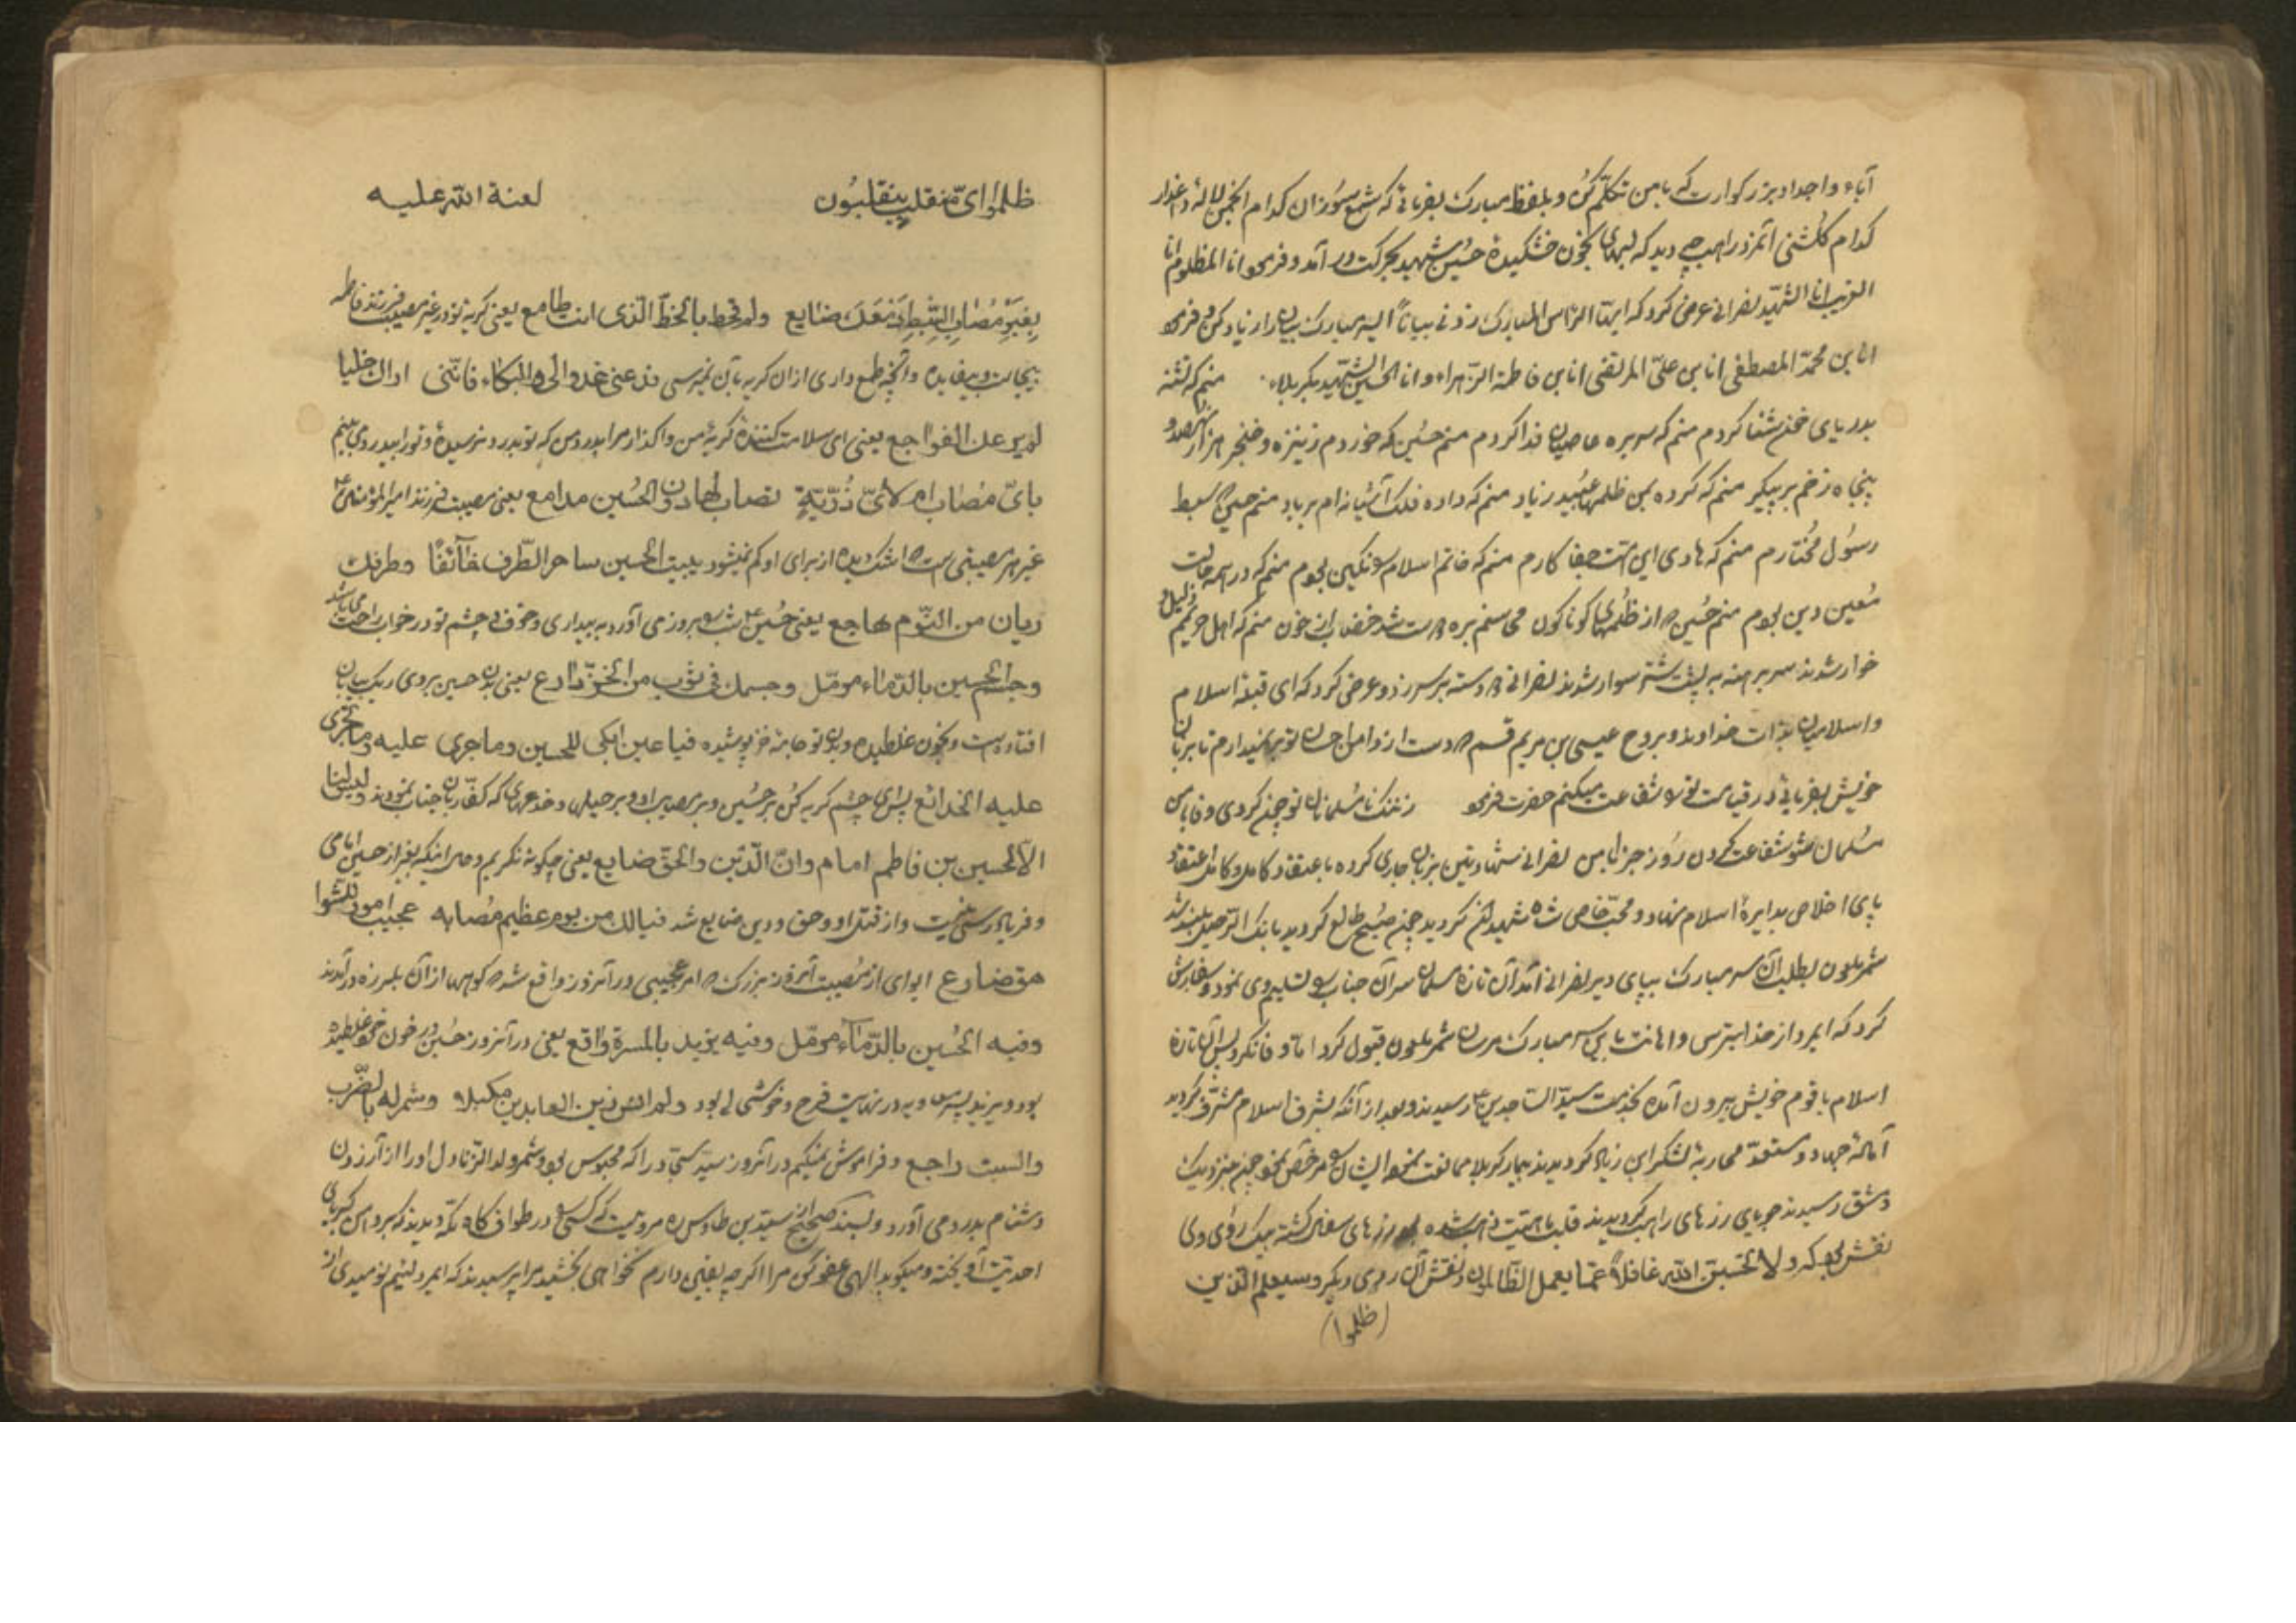 آباء و اجداد بزرگوارت که با من تکلّم کن و بلفظ مبارک بفرمائی که شمع سوزان کدام انجمن لاله داغدار
کدام گلشنی آنمرد راهب دید که لبهای بخون خشکیدهٔ حسین شهید بحرکت در آمد و فرمود انا المظلوم انا
الغریب انا الشهید نصرانی عرض کرد که ایها الراس المبارک زدنی بیاناً ای سر مبارک بیان را زیاد کن فرمود
انا بن محمد المصطفی انا بن علیّ المرتضی انا بن فاطمة الزّهراء و انا الحسین الشهید بکربلاء منم که تشنه
بدریای خون شنا کردم منم که سر بره عاصیان فدا کردم منم حسین که خوردم ز نیزه و خنجر هزار و نهصد و
پنجاه زخم بر پیکر منم که کرده بمن ظلمها عبید زیاد منم که داده فلک آشیانه ام بر باد منم حسین سبط
رسول مختارم منم که هادی این امّت جفا کارم منم که خاتم اسلام را نگین بودم منم که در همه حالت
معین دین بودم منم حسین که از ظلمهای گوناگون محاسنم بره دوست شد خضاب از خون منم که اهل حریمم ذلیل و
خوار شدند سر برهنه به پشت شتر سوار شدند نصرانی دو دسته بر سر زد و عرض کرد که ای قبله اسلام
و اسلامیان بذات خداوند و بروح عیسی بن مریم قسم که دست از دامن احسان تو بر نمیدارم تا بزبان
خویش بفرمائی در قیامت تو را شفاعت میکنم حضرت فرمود ز ننگ نامسلمانان تو چون کردی وفا با من
مسلمان شو شفاعت کردن روز جزا با من نصرانی شهادتین بزبان جاری کرده با عتقاد کامل و کامل اعتقاد
پای اخلاص بدایرهٔ اسلام نهاد و محبّ خاص شاه شهید گردید چون صبح طالع گردید بانک الرّحیل بلند شد
شمر ملعون بطلب آن سر مبارک بپای دیر نصرانی آمد آن تازه مسلمان سر آن جناب را تسلیم وی نمود و سفارش
کرد که ایمرد از خدا بترس و اهانت باین سر مبارک مرسان شمر ملعون قبول کرد امّا وفا نکرد پس آن تازه
اسلام با قوم خویش بیرون آمده بخدمت سیّد الساجدین ع رسیدند و بعد از آنکه بشرف اسلام مشرّف گردید
آمادهٔ جهاد و مستعدّ محاربهٔ لشکر ابن زیاد گردیدند بیمار کربلا ممانعت نمود ایشان را مرخّص نمود چون بنزدیک
دمشق رسیدند جویای زرهای راهب گردیدند قلب ماهیّت شده زرهای سفال گشته بیک روی وی
نقش بود که و لا تحسبنّ الله غافلاً عمّا یعمل الظّالمون و نقش آن روی دیگر و سیعلم الذین
(ظلموا)
ظلموا ایّ منقلب ینقلبون لعنة الله علیه
بغیر مصاب السّبط دمعک ضایع ولم تحط بالحظّ الّذی انت طامع یعنی گریهٔ تو در غیر مصیبت فرزند فاطمه
بیجاست و بیفایده و آنچه طمع داری از آن گریه بآن نمیرسی فدعنی عذولی والبکاء فانّنی اراک خلیّا
لم یرعک الفواجع یعنی ای ملامت کنندهٔ گریهٔ من واگذار مرا بدرد من که تو بدرد نرسیدهٔ و تو را بیدرد می بینم
بایّ مصاب ام لایّ ذُرّیّةٍ تصاب لها دون الحُسین مدامع یعنی مصیبت فرزند امیرالمؤمنین ع
غیر هر مصیبتی است که اشک دیده از برای او کم نمیشود یبیت الحسین ساهر الطّرف خآئفًا وطرفک
ریان من النّوم هاجع یعنی حُسین ع شب را بروز می آورد به بیداری و خوف و چشم تو در خواب راحت می باشد
وجسم الحسین بالدّماء مرمّل وجسمک فی ثوب من الخزّ دارع یعنی بدن حسین بروی ریک بیابان
افتاده است و بخون غلطیده و بدن تو جامهٔ خز پوشیده فیا عین ابکی للحسین وما جری علیه وما تجری
علیه الخدائع پس ای چشم گریه کن بر حُسین و بر مصایب او و بر حیلها و خدعهای که کفّار بآن جناب نمودند ولیس لنا
الاّ الحسین بن فاطم امام وانّ الدّین والحقّ ضایع یعنی چگونه نگریم و حال اینکه بغیر از حسین امامی
و فریادرسی نیست و از قتل او حق و دین ضایع شد فیالک من یوم عظیم مُصابه عجیب امور
ای وای از مُصیبت آنروز بزرگ که امر عجیبی در آنروز واقع شد که کوهها از آن بلرزه در آمدند
وفیه الحُسین بالدّمآء مرمّل وفیه یزید بالمسرة واقع یعنی در آنروز حُسین در خون خود غلطیده
بود و یزید پسر معویه در نهایت فرح و خوشی بود ولم انس زین العابدین مکبلا وشمر له بالضّرب
والسبّ راجع و فراموش نمیکنم در آنروز سیّد سجّاد را که محبوس بود و شمر ولد الزّنا دل او را از آزردن
و دشنام بدرد می آورد و بسند صحیح از سیّد بن طاوس ره مرویست که کسی را در طواف کاه مکّه دیدند که بر دامن کبریای
احدیت آویخته و میگوید الهی عفو کن مرا اگرچه یقین دارم نخواهی بخشید مرا پرسیدند که ایمرد لئیم نومیدی از